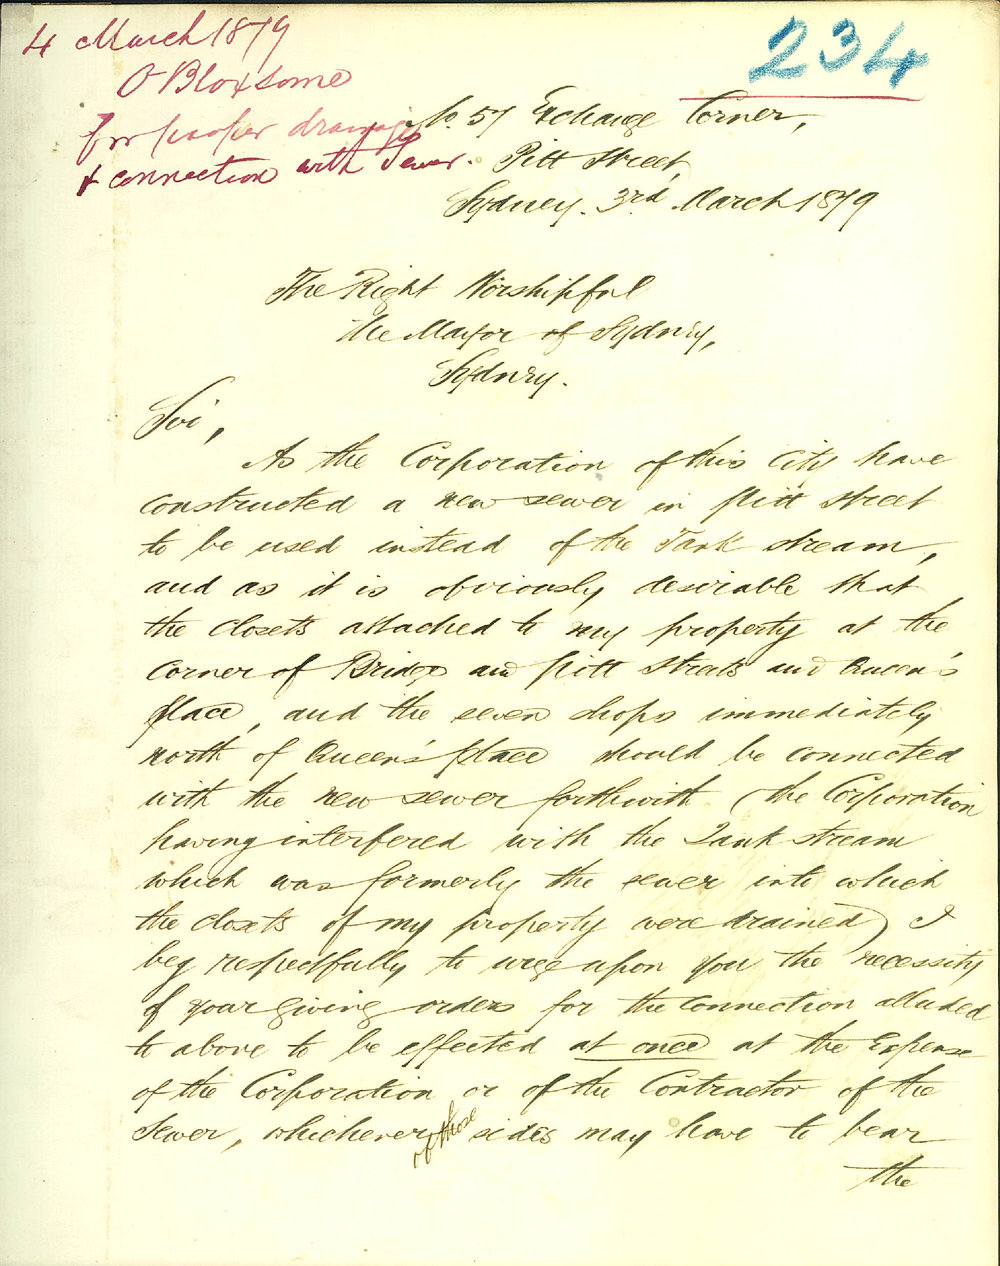 4 March 1879
O Bloxsome
for proper drainage
& connection with Sewer.
234
No. 57 Exchange Corner,
Pitt Street,
Sydney. 3rd March 1879
The Right Worshipful
the Mayor of Sydney,
Sydney.
Sir,
As the Corporation of this City have
constructed a new sewer in Pitt Street
to be used instead of the Tank stream,
and as it is obviously desirable that
the closets attached to my property at the
corner of Bridge and Pitt Streets and Queen's
Place, and the seven shops immediately
north of Queen's Place should be connected
with the new sewer forthwith (the Corporation
having interfered with the Tank stream
which was formerly the sewer into which
the closets of my property were drained) I
beg respectfully to urge upon you the necessity
of your giving orders for the connection alluded
to above to be effected at once at the Expense
of the Corporation or of the Contractor of the
Sewer, whichever of those sides may have to bear
the